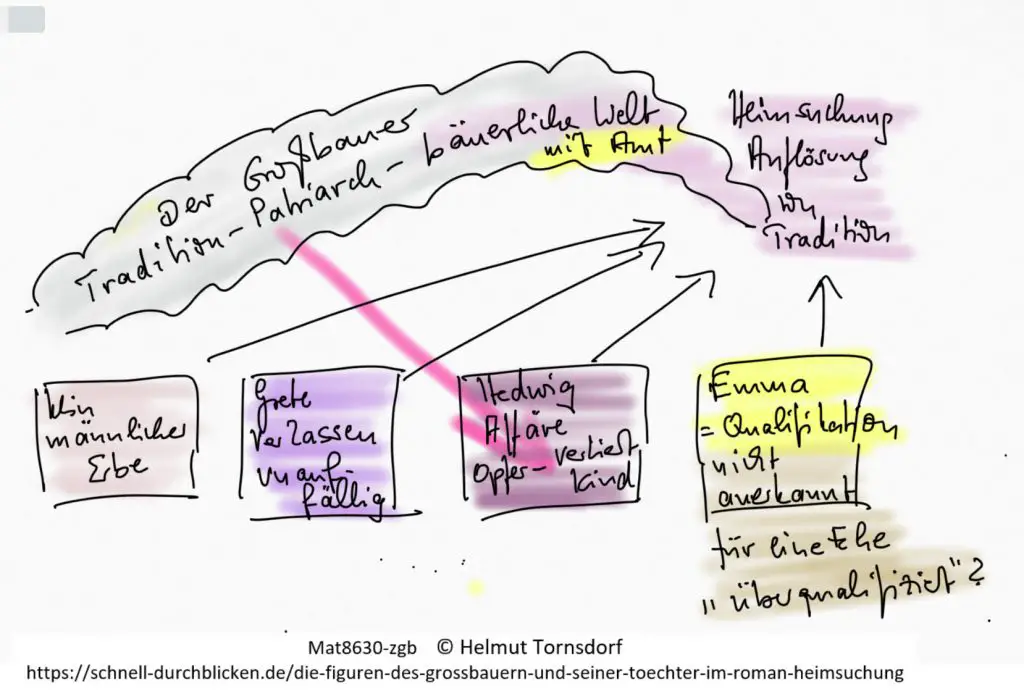 Der Großbauer
Tradition - Patriarch - bäuerliche Welt
mit Amt
Heimsuchung
Auflösung
von
Tradition
Kein
männlicher
Erbe
Grete
verlassen
unauf-
fällig
Hedwig
Affäre
Opfer - verliert
Kind
Emma
= Qualifikation
nicht
anerkannt
für eine Ehe
"überqualifiziert"?
Mat8630-zgb © Helmut Tornsdorf
https://schnell-durchblicken.de/die-figuren-des-grossbauern-und-seiner-toechter-im-roman-heimsuchung